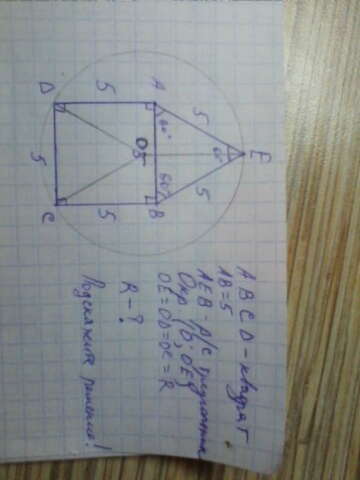 E
5
5
60°
A
60°
60°
B
O
5
5
D
5
C
ABCD - квадрат
AB = 5
AEB - р/с треугольник
Окр (O; OE)
OE = OD = OC = R
R - ?
Подскажите решение!